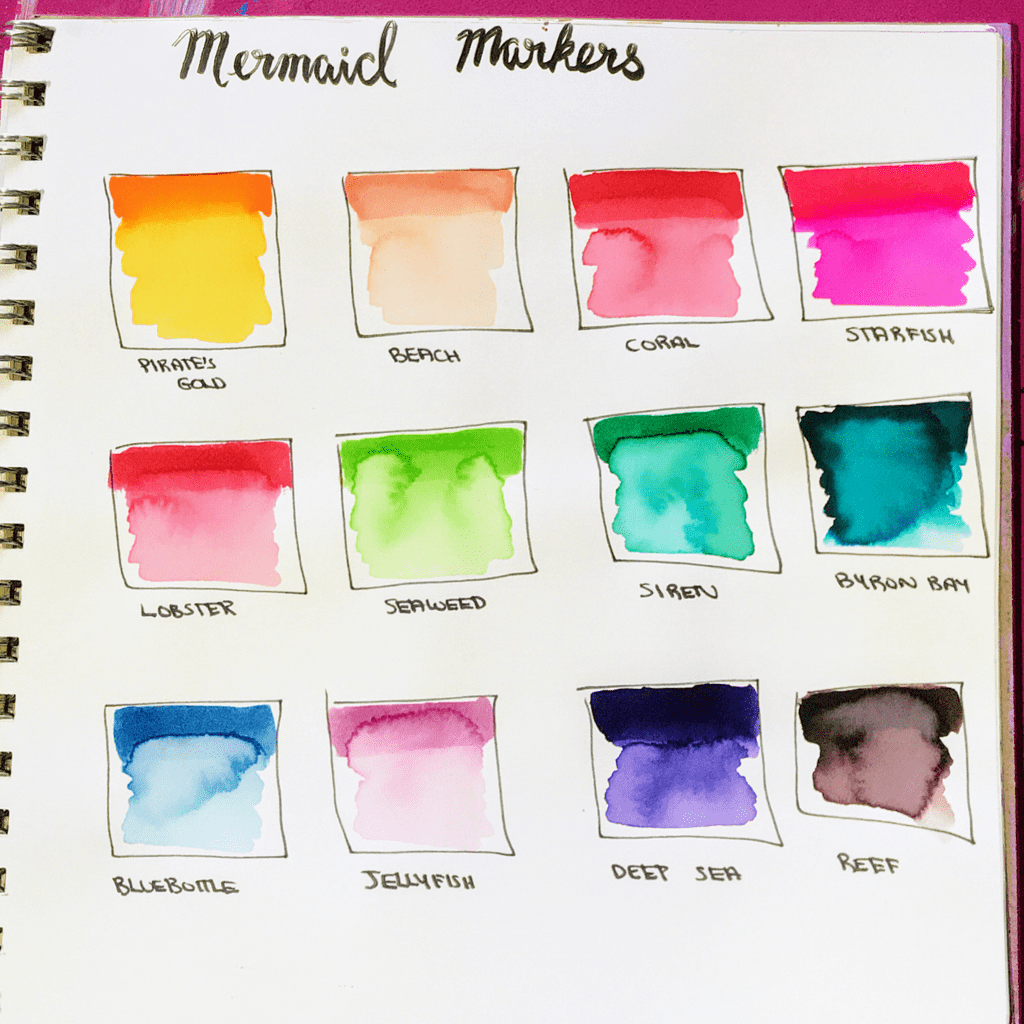 Mermaid Markers
PIRATE'S
GOLD
BEACH
CORAL
STARFISH
LOBSTER
SEAWEED
SIREN
BYRON BAY
BLUEBOTTLE
JELLYFISH
DEEP SEA
REEF